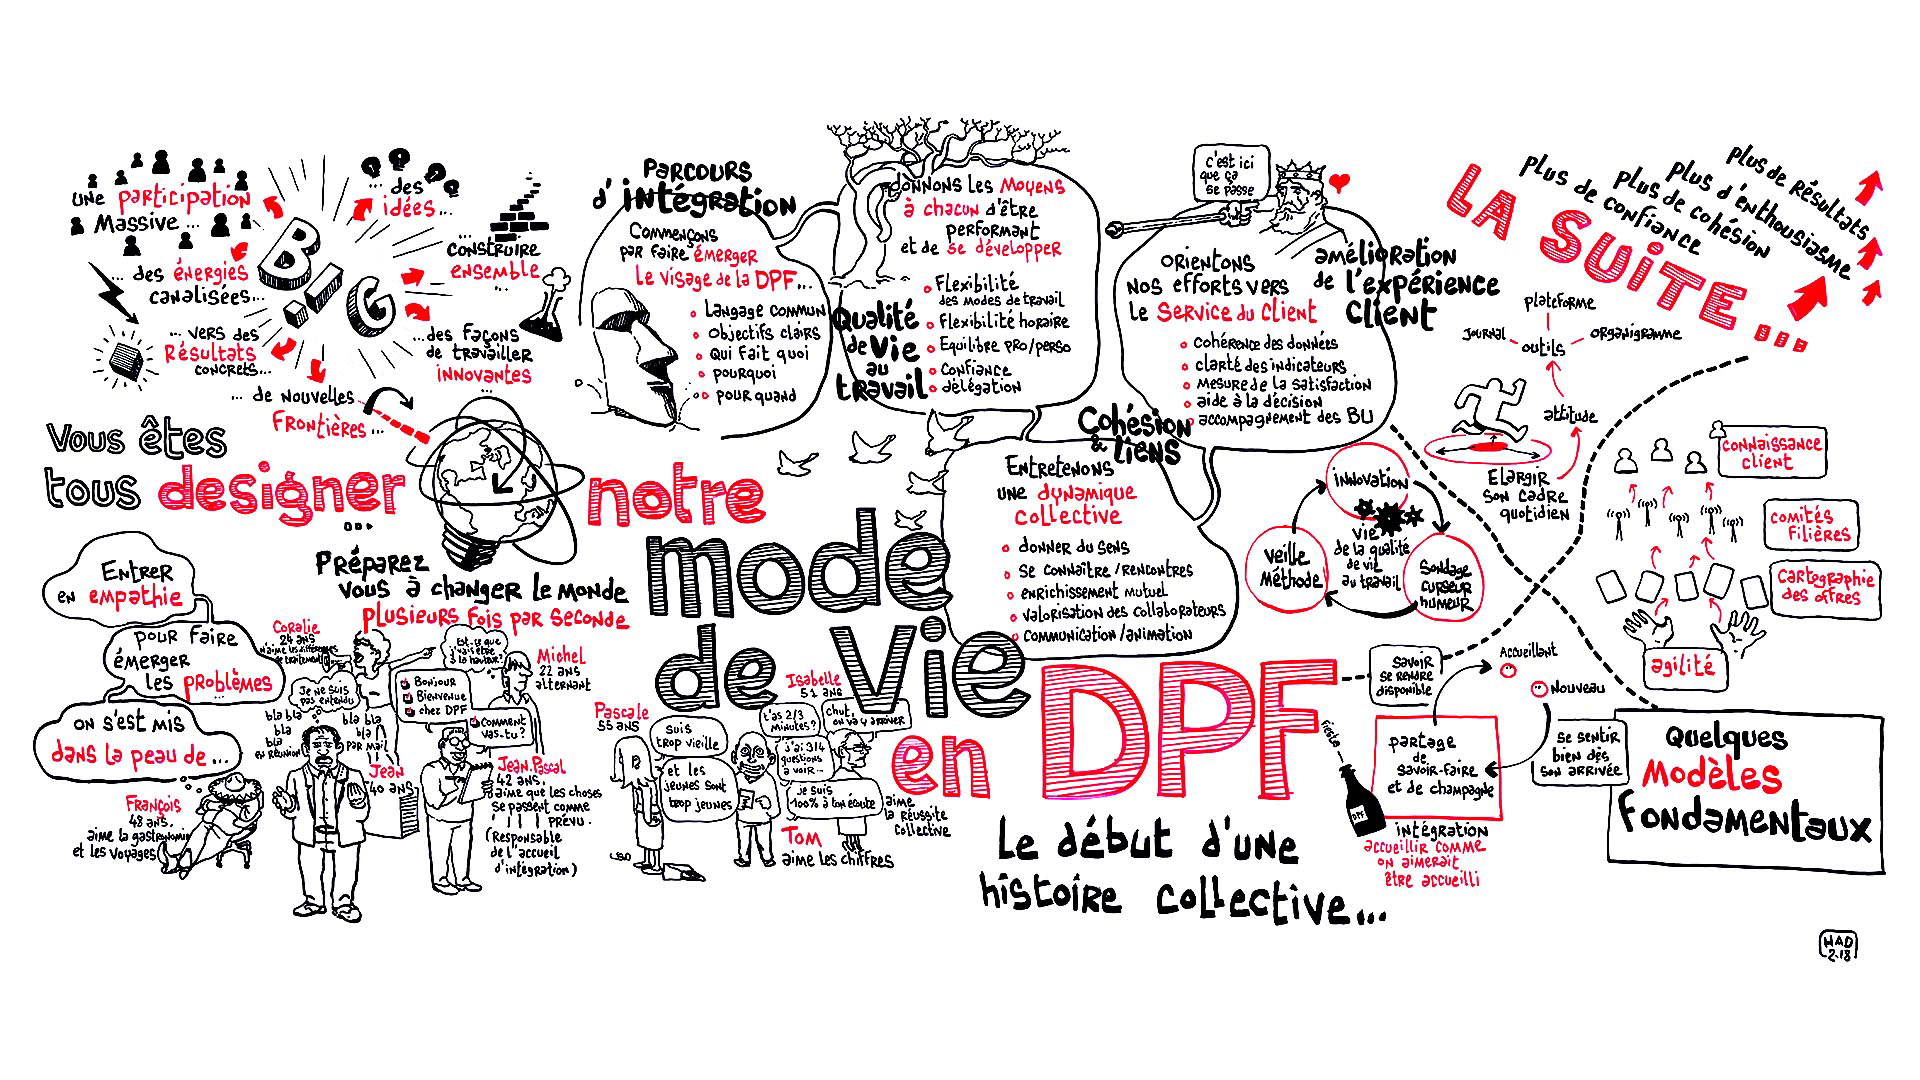 une participation
Massive ...
... des
idées ...
...
construire
ensemble
BIG
... des énergies
canalisées...
... vers des
Résultats
concrets...
...des façons
de travailler
innovantes
... de nouvelles
Frontières ...
Vous êtes
tous designer
...
notre
mode
de vie
en DPF
Préparez
vous à changer le monde
plusieurs fois par seconde
Entrer
en empathie
pour faire
émerger
les problèmes
on s'est mis
dans la peau de ...
François
48 ans.
aime la gastronomie
et les voyages
Coralie
24 ans
n'aime les différences
de traitement
Je ne suis
pas entendu
bla bla
bla
bla
bla
en réunion
bla bla
bla
par mail
Jean
40 ans
Est-ce que
j'vais être
à la hauteur?
Michel
22 ans
alternant
Bonjour
Bienvenue
chez DPF
Comment
vas-tu?
Jean.Pascal
42 ans,
aime que les choses
se passent comme
prévu.
(Responsable
de l'accueil
d'intégration)
Pascale
55 ans
suis
trop vieille
et les
jeunes sont
trop jeunes
Isabelle
51 ans
t'as 2/3
minutes?
j'ai 314
questions
à voir...
chut,
on va y arriver
je suis
100% à ton écoute
aime
la réussite
collective
Tom
aime les chiffres
Parcours
d'intégration
Commençons
par faire émerger
le visage de la DPF...
Langage commun
objectifs clairs
Qui fait quoi
pourquoi
pour quand
donnons les Moyens
à chacun d'être
performant
et de se développer
Qualité
de Vie
au
travail
Flexibilité
des modes de travail
Flexibilité horaire
Equilibre pro/perso
Confiance
délégation
c'est ici
que ça
se passe
orientons
nos efforts vers
le Service du client
amélioration
de l'expérience
client
cohérence des données
clarté des indicateurs
mesure de la satisfaction
aide à la décision
accompagnement des BU
Cohésion
& liens
Entretenons
une dynamique
collective
donner du sens
se connaître/rencontres
enrichissement mutuel
valorisation des collaborateurs
communication/animation
innovation
veille
Méthode
vie
de la qualité
de vie
au travail
Sondage
curseur
humeur
LA SUITE...
plus de confiance
plus de cohésion
plus d'enthousiasme
plus de Résultats
plateforme
Journal
outils
organigramme
attitude
Elargir
son cadre
quotidien
connaissance
client
comités
filières
cartographie
des offres
agilité
savoir
se rendre
disponible
Accueillant
Nouveau
Fiesta
DPF
partage
de
savoir-faire
et de champagne
se sentir
bien dès
son arrivée
intégration
accueillir comme
on aimerait
être accueilli
Quelques
Modèles
Fondamentaux
Le début d'une
histoire collective...
HAD
2.18